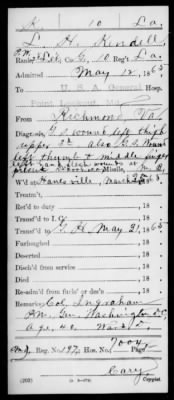 K. 10 La
L. H. Kendell,
Rank, Co. G, 10 Reg't La.
Admitted May 12, 1865
To U. S. A. General Hosp.
Point Lookout, Md.
From Richmond, Va.
Diagnosis, G.S. wound left thigh
upper 3d also G.S. wound
left thumb & middle finger
Missile, M. B.
W'd at March 25, 1865
Treatm't, , 18
Ret'd to duty , 18
Transf'd to I. C. , 18
Transf'd to G. H. May 21, 1865
Furloughed , 18
Deserted , 18
Disch'd from service , 18
Died , 18
Re-adm'd from furlo' or des'n , 18
Remarks: Col. Ingraham
P.M. Gen. Washington D.C.
Age, 40. Ward
Reg. No. 197; Hos. No. 7004; Page
Cary
(203) Copyist.